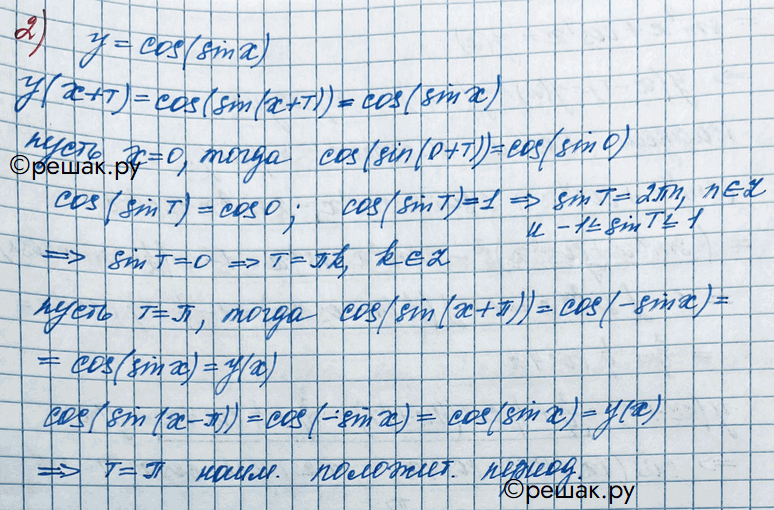 2) y = cos(sin x)
y(x+T) = cos(sin(x+T)) = cos(sin x)
пусть x=0, тогда cos(sin(0+T)) = cos(sin 0)
©решак.ру
cos(sin T) = cos 0; cos(sin T) = 1 ⇒ sin T = 2πn, n ∈ Z
и -1 ≤ sin T ≤ 1
⇒ sin T = 0 ⇒ T = πk, k ∈ Z
пусть T = π, тогда cos(sin(x+π)) = cos(-sin x) =
= cos(sin x) = y(x)
cos(sin(x-π)) = cos(-sin x) = cos(sin x) = y(x)
⇒ T = π наим. положит. период.
©решак.ру